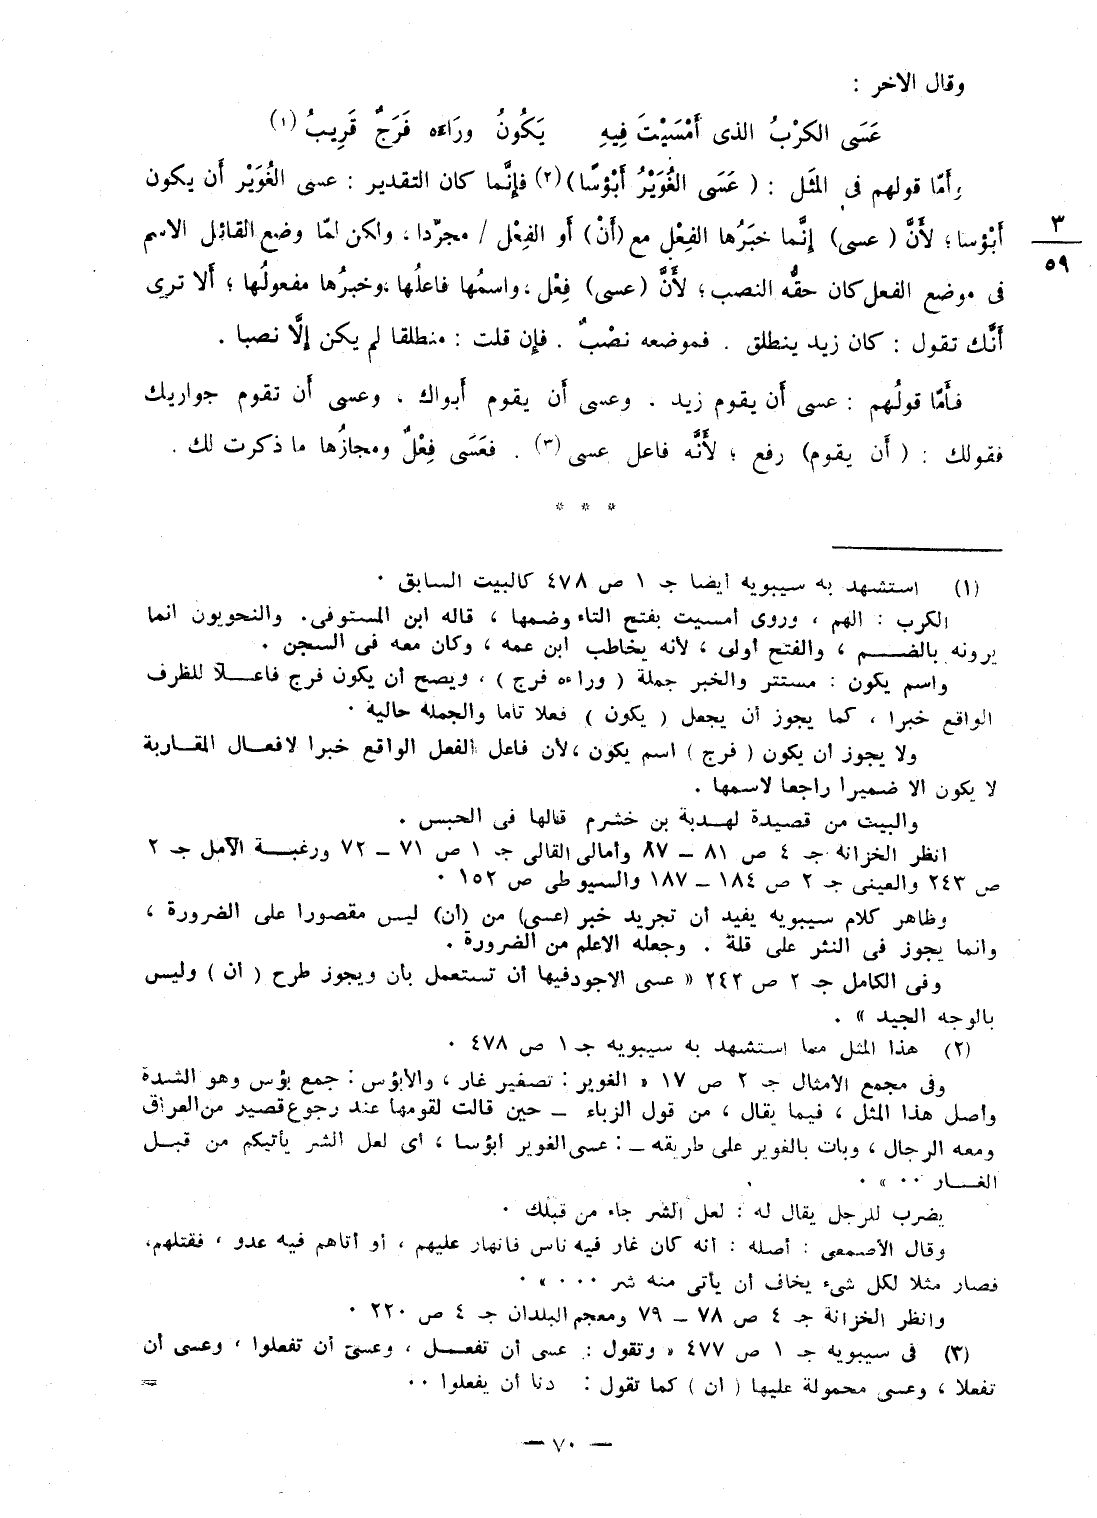 وقال الآخر :
عَسَى الكرْبُ الذى أَمْسَيْتَ فِيهِ يَكُونُ ورَاءَه فَرَجٌ قَرِيبُ (١)
وأَمّا قولهم فى المثَل : ( عَسَى الغُوَيْرُ أَبْؤسًا) (٢) فإِنَّما كان التقدير : عسى الغُوَيْر أَن يكون
أَبْؤسا ؛ لأَنَّ ( عسى) إِنَّما خبَرُها الفِعْل مع (أَنْ) أَو الفِعْل / مجرّدا ، ولكن لمّا وضع القائِل الاسم
٣
٥٩
فى موضع الفعل كان حقُّه النصب ؛ لأَنَّ (عسى) فِعْل ، واسمُها فاعلُها ، وخبرُها مفعولُها ؛ أَلا ترى
أَنَّك تقول : كان زيد ينطلق . فموضعه نصْبٌ . فإِن قلت : منطلقا لم يكن إِلَّا نصبا .
فأَمّا قولُهم : عسى أَن يقوم زيد . وعسى أَن يقوم أَبواك ، وعسى أَن تقوم جواريك
فقولك : ( أَن يقوم) رفع ؛ لأَنَّه فاعل عسى (٣) . فعَسَى فِعْلٌ ومجازُها ما ذكرت لك .
* * *
(١) استشهد به سيبويه أيضا جـ ١ ص ٤٧٨ كالبيت السابق ٠
الكرب : الهم ، وروى أمسيت بفتح التاء وضمها ، قاله ابن المستوفى. والنحويون انما
يرونه بالضـــم ، والفتح أولى ، لأنه يخاطب ابن عمه ، وكان معه فى السجن .
واسم يكون : مستتر والخبر جملة ( وراءه فرج ) ، ويصح أن يكون فرج فاعـلا للظرف
الواقع خبرا ، كما يجوز أن يجعل ( يكون ) فعلا تاما والجملة حالية ٠
ولا يجوز أن يكون ( فرج ) اسم يكون ، لأن فاعل الفعل الواقع خبرا لافعـال المقاربة
لا يكون الا ضميرا راجعا لاسمها .
والبيت من قصيدة لهـدبة بن خشرم قالها فى الحبس .
انظر الخزانة جـ ٤ ص ٨١ ـ ٨٧ وأمالى القالى جـ ١ ص ٧١ ـ ٧٢ ورغبـــة الآمل جـ ٢
ص ٢٤٣ والعينى جـ ٢ ص ١٨٤ ـ ١٨٧ والسيوطى ص ١٥٢ ٠
وظاهر كلام سيبويه يفيد أن تجريد خبر (عسى) من (أن) ليس مقصورا على الضرورة ،
وانما يجوز فى النثر على قلة . وجعله الاعلم من الضرورة .
وفى الكامل جـ ٢ ص ٢٤٢ « عسى الاجود فيها أن تستعمل بأن ويجوز طرح ( أن ) وليس
بالوجه الجيد » .
(٢) هذا المثل مما استشهد به سيبويه جـ ١ ص ٤٧٨ ٠
وفى مجمع الامثال جـ ٢ ص ١٧ « الغوير : تصغير غار ، والأبؤس : جمع بؤس وهو الشدة
وأصل هذا المثل ، فيما يقال ، من قول الزباء ـ حين قالت لقومها عند رجوع قصير من العراق
ومعه الرجال ، وبات بالغوير على طريقه ـ : عسى الغوير أبؤسا ، أى لعل الشر يأتيكم من قبـل
الغـــار ٠٠ » ٠
يضرب للرجل يقال له : لعل الشر جاء من قبلك ٠
وقال الأصمعى : أصله : أنه كان غار فيه ناس فانهار عليهم ، أو أتاهم فيه عدو ، فقتلهم،
فصار مثلا لكل شىء يخاف أن يأتى منه شر ٠٠٠ » ٠
وانظر الخزانة جـ ٤ ص ٧٨ ـ ٧٩ ومعجم البلدان جـ ٤ ص ٢٢٠ ٠
(٣) فى سيبويه جـ ١ ص ٤٧٧ « وتقول : عسى أن تفعــل ، وعسى أن تفعلوا ، وعسى أن
تفعلا ، وعسى محمولة عليها ( أن ) كما تقول : دنا أن يفعلوا ٠٠ =
— ٧٠ —